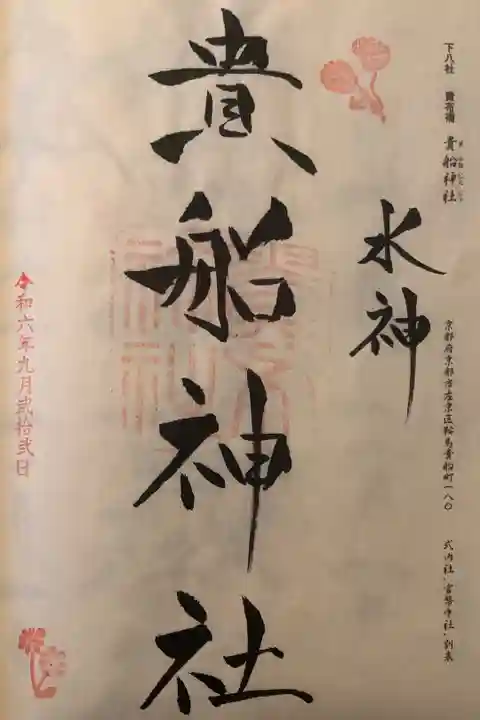 貴船神社
水神
下八社
貴船神社
京都府京都市左京区鞍馬貴船町一八〇
式内社
令和六年九月弐拾弐日